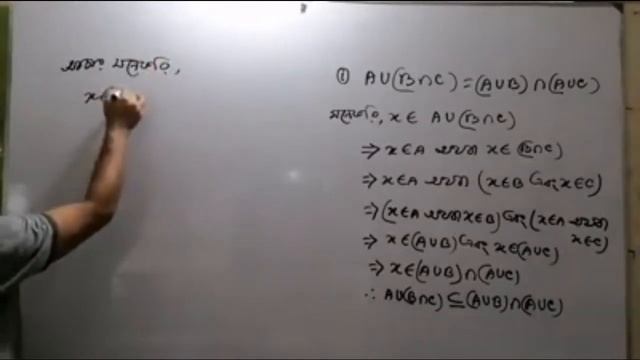 আবার মনেকরি,
x
① A∪(B∩C) = (A∪B)∩(A∪C)
মনেকরি, x ∈ A∪(B∩C)
⇒ x∈A অথবা x∈(B∩C)
⇒ x∈A অথবা (x∈B এবং x∈C)
⇒ (x∈A অথবা x∈B) এবং (x∈A অথবা x∈C)
⇒ x∈(A∪B) এবং x∈(A∪C)
⇒ x∈(A∪B)∩(A∪C)
∴ A∪(B∩C) ⊆ (A∪B)∩(A∪C)